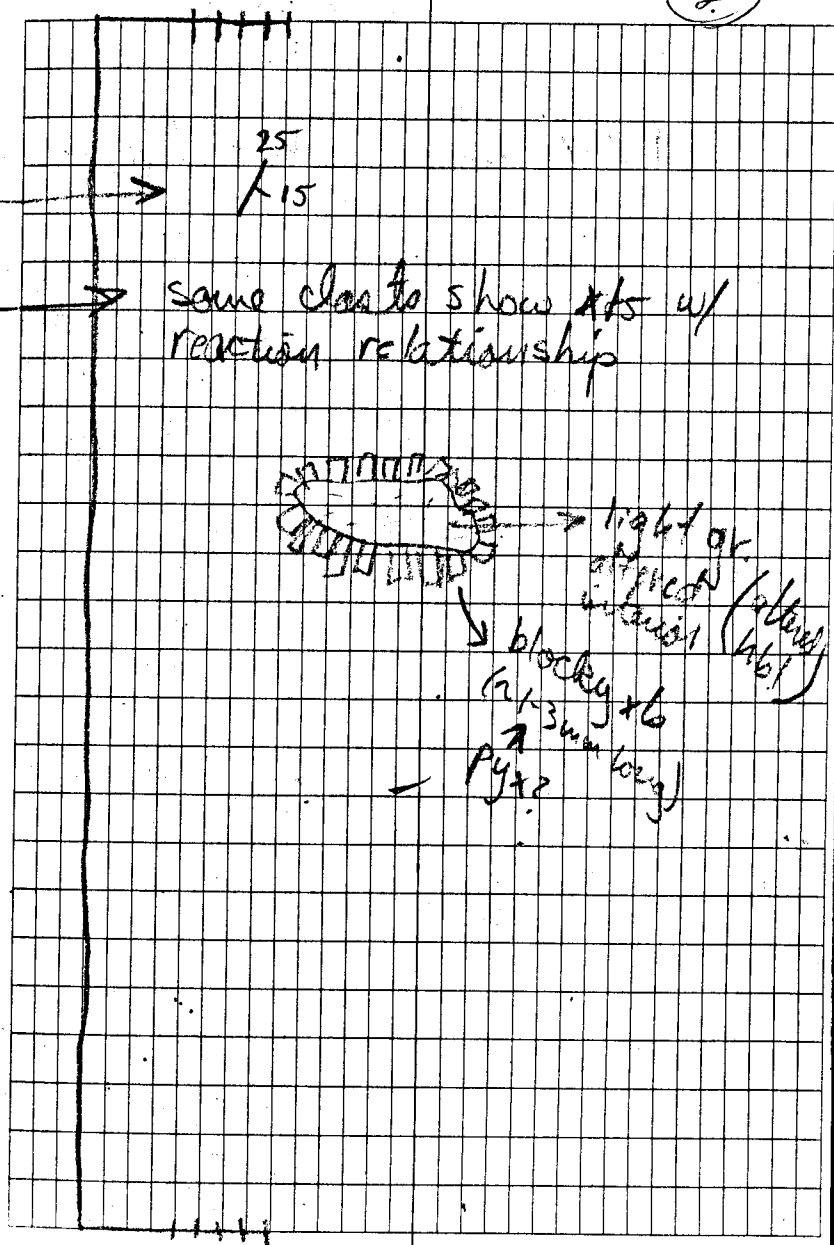 25
15
some clasts show xtls w/
reaction relationship
light gr.
altered
interior (altered
hbl)
blocky xtls
(~1-3mm long)
Pyx?